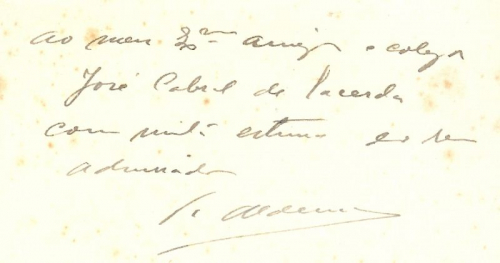 ao meu Exmo amigo e colega
José Cabral de Lacerda
com muita estima e
admirador